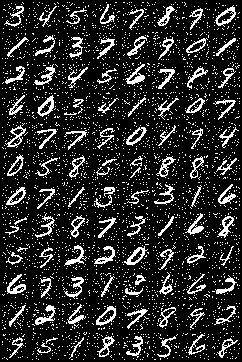 3 4 5 6 7 8 9 0
1 2 3 7 8 9 0 1
2 3 4 5 6 7 8 9
6 0 3 4 1 4 0 7
8 7 7 9 0 4 9 4
0 5 8 5 9 8 8 4
0 7 1 3 5 3 1 6
5 3 8 7 3 1 6 8
5 9 2 2 0 9 2 4
6 7 3 1 3 6 6 2
1 2 6 0 7 8 9 2
9 5 1 8 3 5 6 8